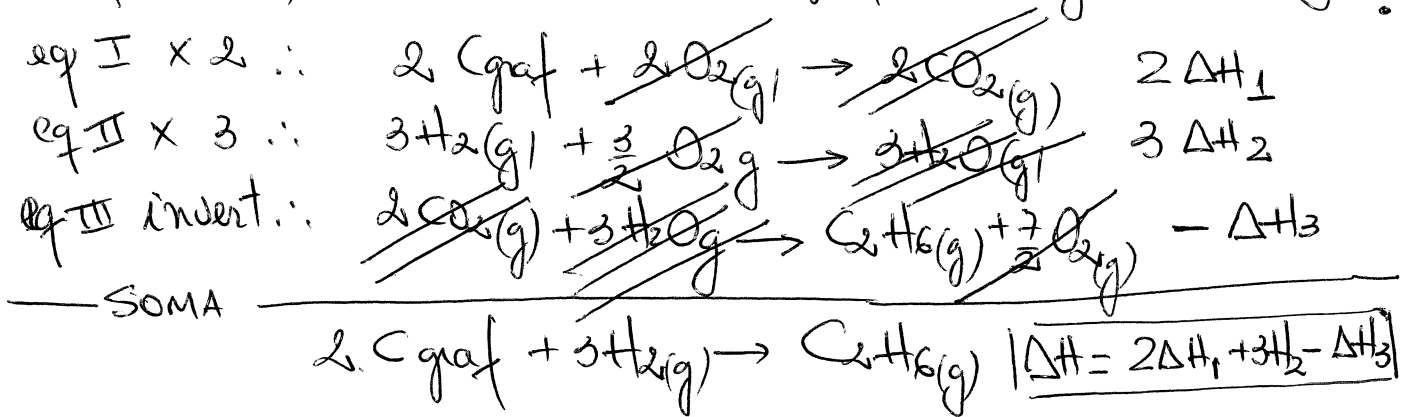 eq I x 2 ∴ 2 Cgraf + 2O2(g) → 2CO2(g) 2ΔH1
eq II x 3 ∴ 3H2(g) + 3/2 O2 g → 3H2O(g) 3ΔH2
eq III invert. ∴ 2CO2(g) + 3H2Og → C2H6(g) + 7/2 O2(g) - ΔH3
SOMA
2 Cgraf + 3H2(g) → C2H6(g) |ΔH = 2ΔH1 + 3H2 - ΔH3|